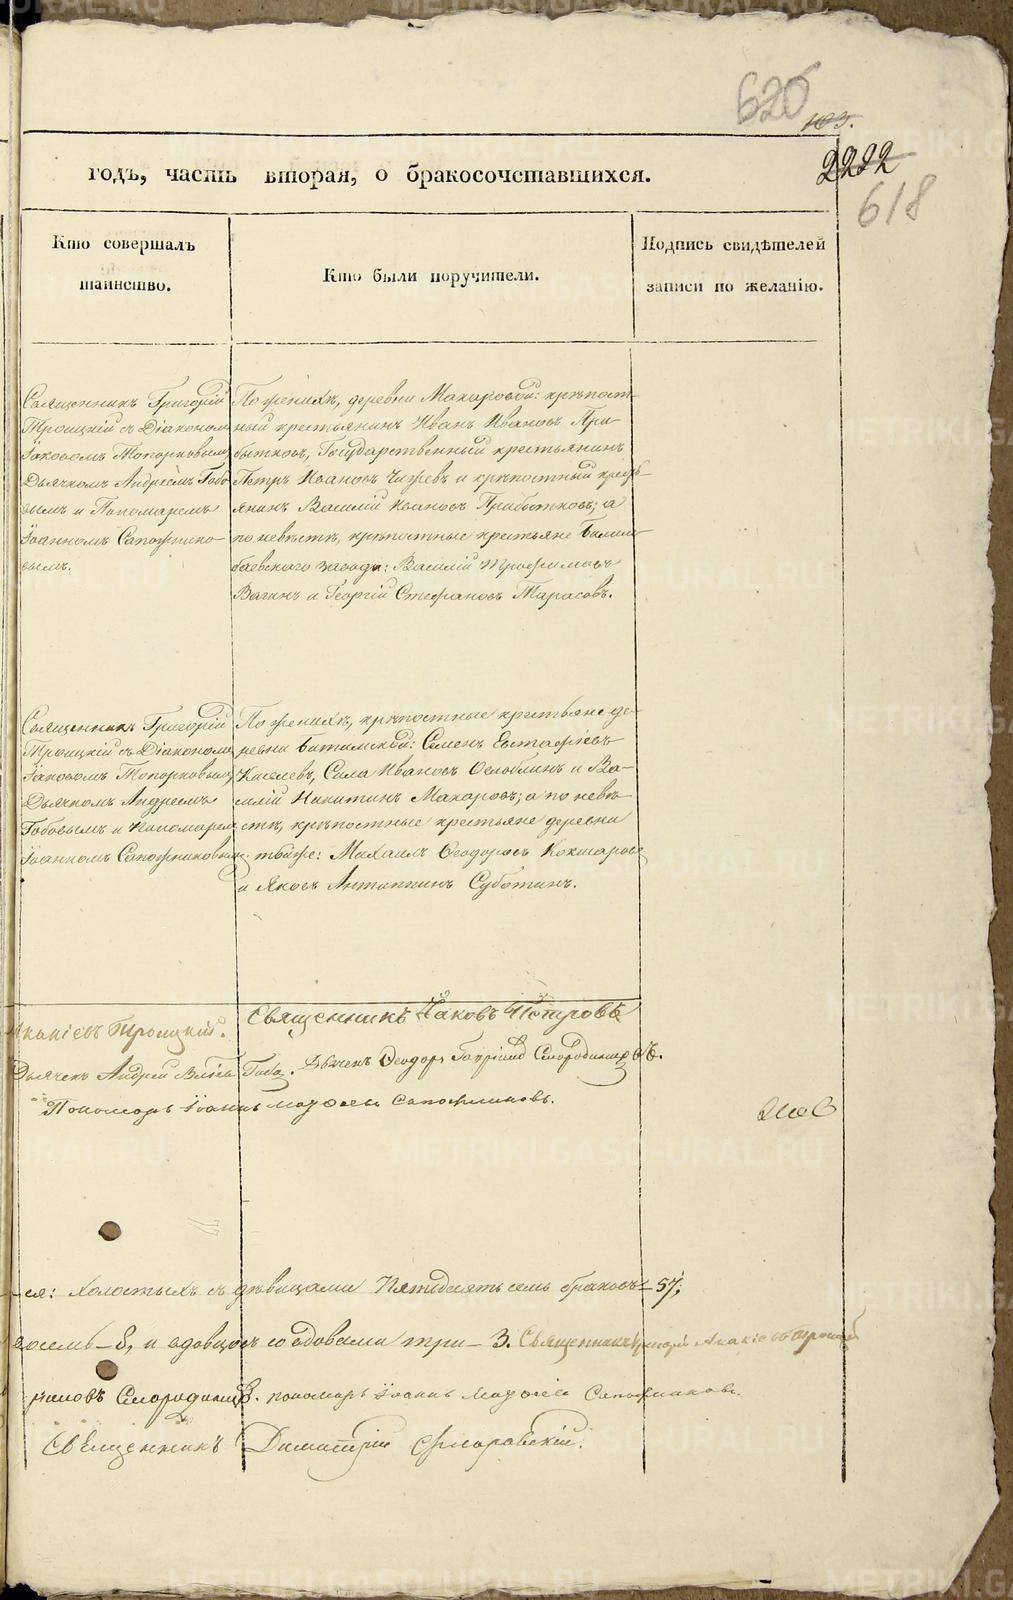 626
103.
2222
618
годъ, часть вторая, о бракосочетавшихся.
Кто совершалъ таинство.
Кто были поручители.
Подпись свидѣтелей записи по желанію.
Священникъ Григорій
Троицкій съ Діакономъ
Іаковомъ Топорковымъ,
Дьячкомъ Андреемъ Бобо
вымъ и Пономаремъ
Іоанномъ Сапожнико-
вымъ.
По женихѣ, деревни Макаровой: крѣпост-
ный крестьянинъ Иванъ Ивановъ При-
бытковъ, Государственный крестьянинъ
Петръ Ивановъ Чижевъ и крѣпостный кресть-
янинъ Василій Ивановъ Прибытковъ; а
по невѣстѣ, крѣпостные крестьяне Билим
баевскаго завода: Василій Трофимовъ
Вагинъ и Георгій Стефановъ Тарасовъ.
Священникъ Григорій
Троицкій съ Діакономъ
Іаковомъ Топорковымъ,
Дьячкомъ Андреемъ
Бобовымъ и Пономаремъ
Іоанномъ Сапожниковымъ.
По женихѣ, крѣпостные крестьяне де-
ревни Битимской: Семенъ Евстафіевъ
Киселевъ, Сила Ивановъ Ослоблинъ и Ва-
силій Никитинъ Макаровъ; а по невѣ
стѣ, крѣпостные крестьяне деревни
тойже: Михаилъ Ѳеодоровъ Кокшаровъ
и Яковъ Антипинъ Суботинъ.
Акакіевъ Троицкій.
Священникъ Іаковъ Петровъ
Дьячекъ Андрей Бобо. Дьячекъ Ѳеодоръ Смородинцовъ.
Пономарь Іоаннъ Матѳеевъ Сапожниковъ.
ся: холостыхъ съ дѣвицами пятьдесятъ семь браковъ – 57;
восемь – 8, и вдовцовъ со вдовами три – 3. Священникъ Григорій Акакіевъ Троицкій
Смородинцовъ. пономарь Іоаннъ Матѳеевъ Сапожниковъ.
Священникъ Димитрій Флоровскій.
METRIKI.GASO-URAL.RU